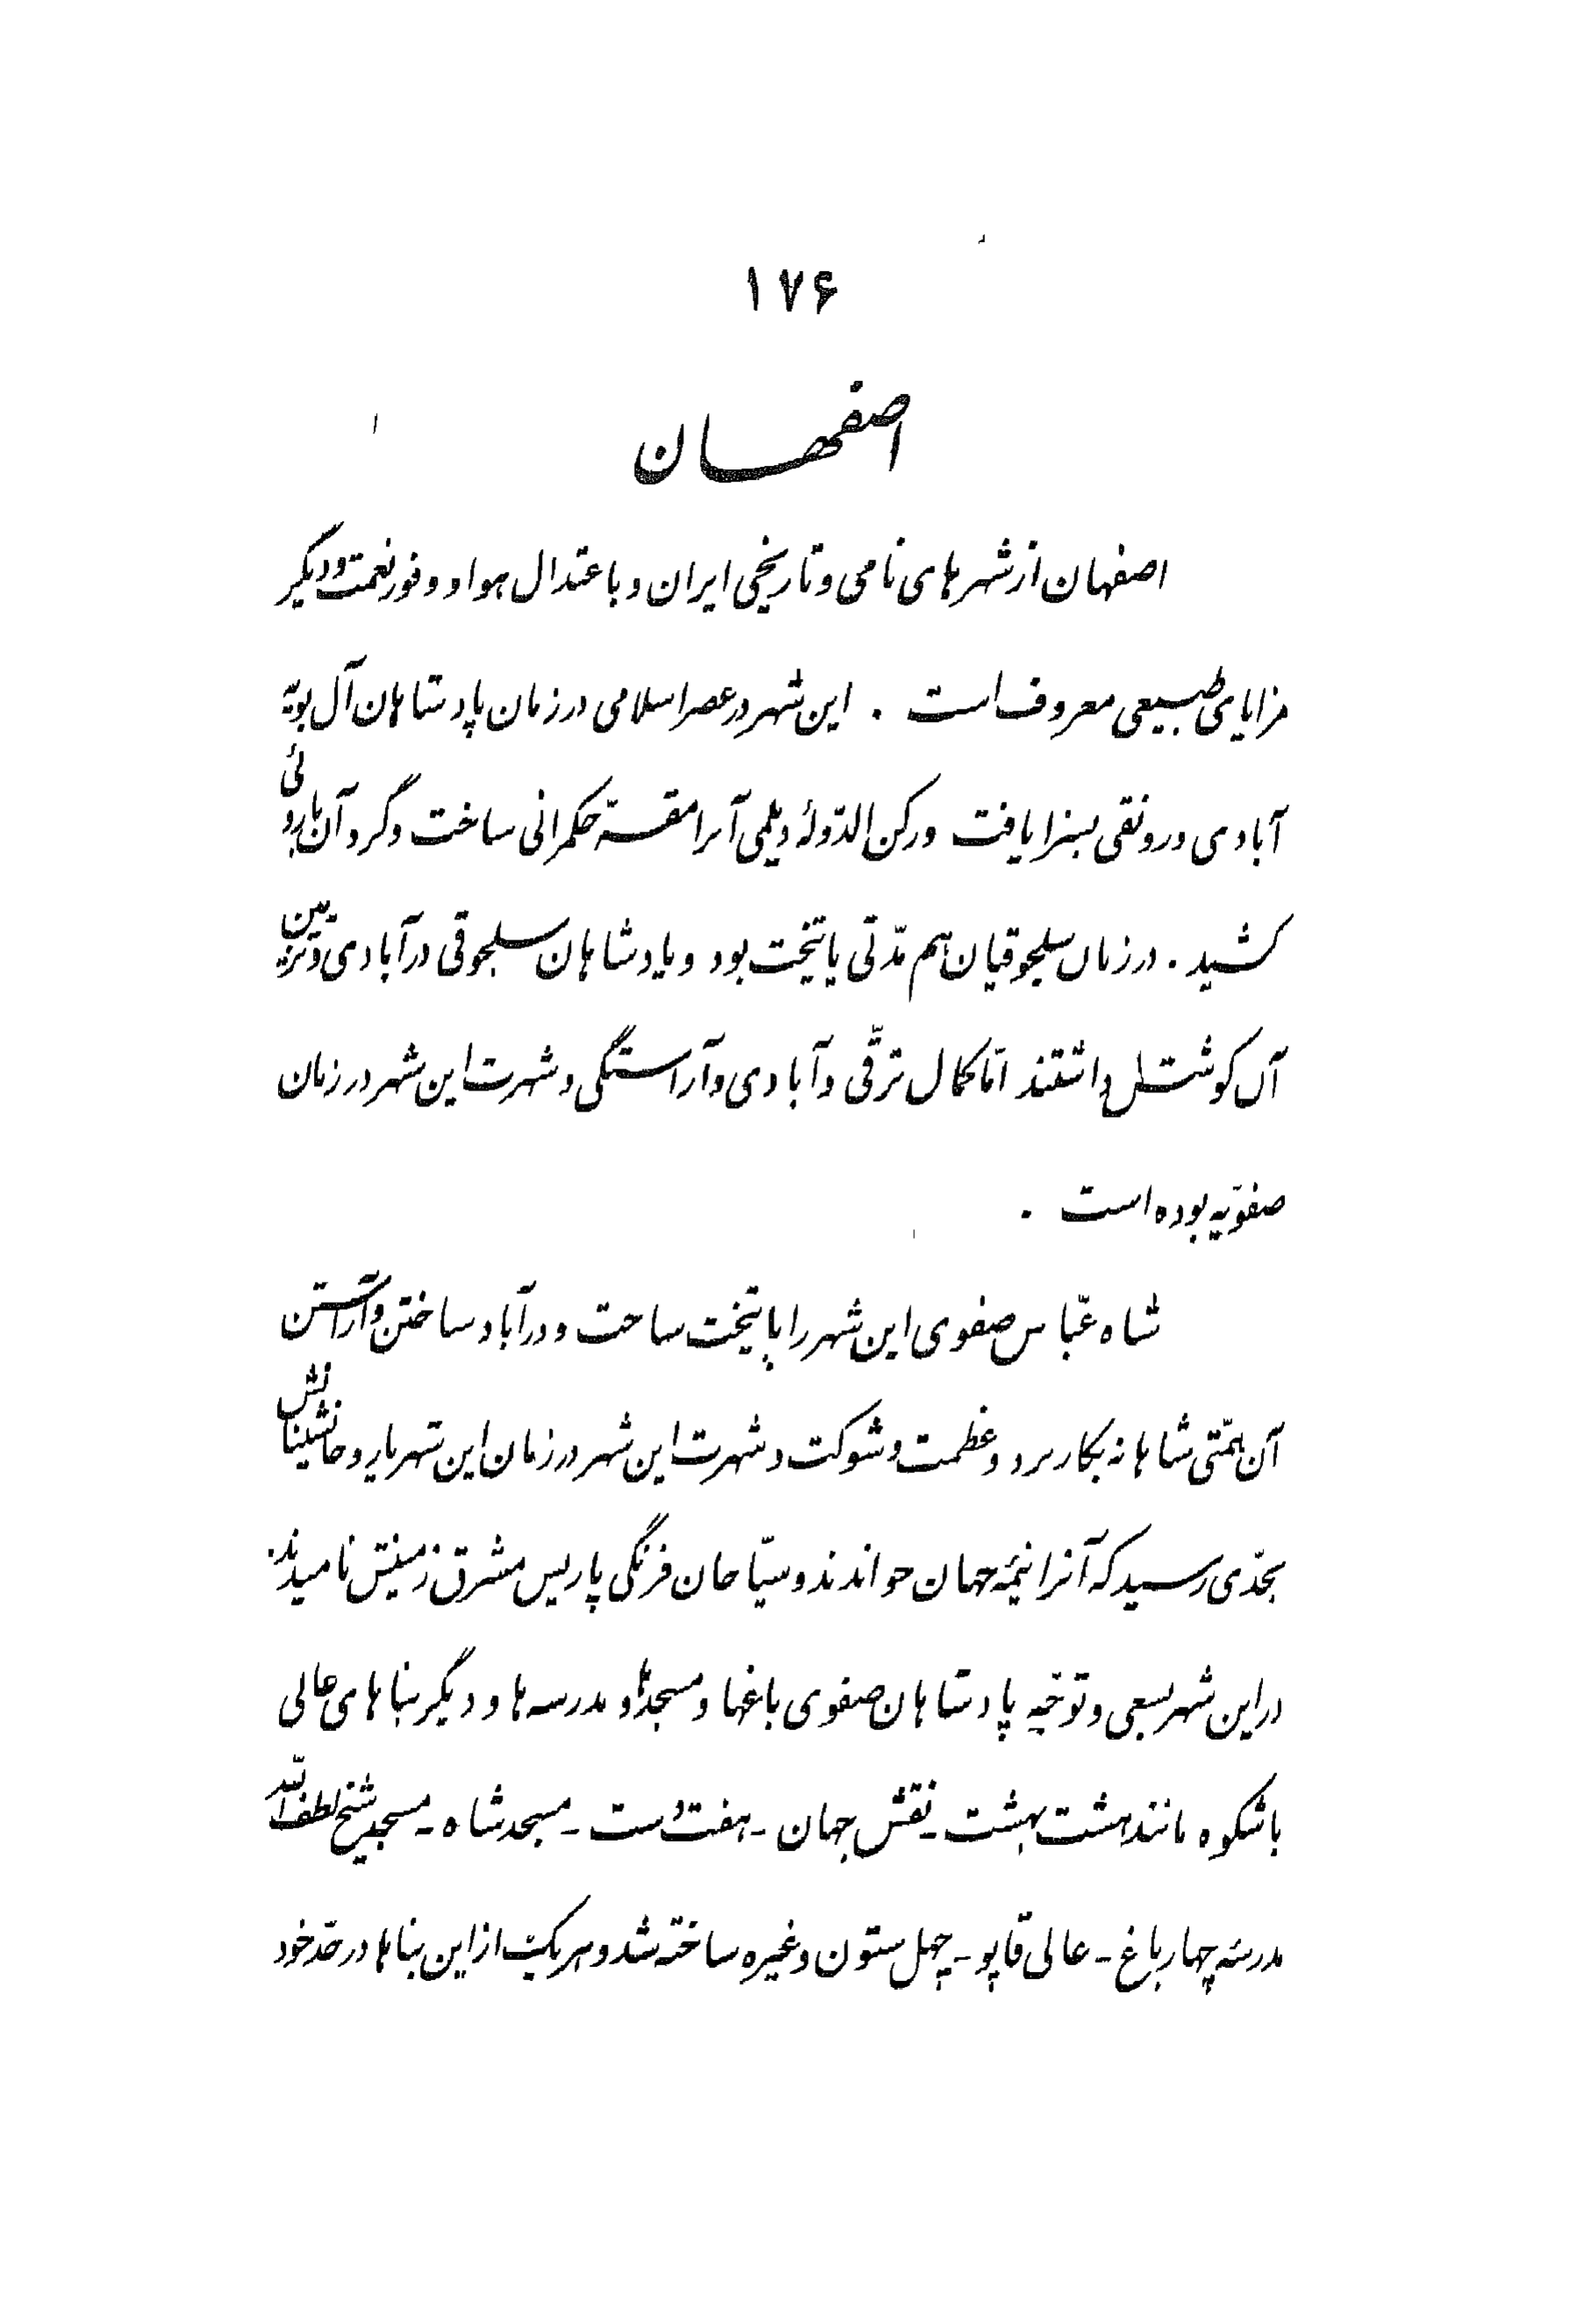 ۱۷۶
اصفهان
اصفهان از شهرهای نامی و تاریخی ایران و باعتدال هوا و وفور نعمت و دیگر
مزایای طبیعی معروف است . این شهر در عصر اسلامی در زمان پادشاهان آل بویه
آبادی و رونقی بسزا یافت و رکن‌الدّولهٔ دیلمی آنرا مقرّ حکمرانی ساخت و گرد آن باروئی
کشید . در زمان سلجوقیان هم مدّتی پایتخت بود و پادشاهان سلجوقی در آبادی و تزیین
آن کوشش داشتند امّا کمال ترقّی و آبادی و آراستگی و شهرت این شهر در زمان
صفویّه بوده است .
شاه عبّاس صفوی این شهر را پایتخت ساخت و در آباد ساختن و آراستن
آن همّتی شاهانه بکار برد و عظمت و شوکت و شهرت این شهر در زمان این شهریار و جانشینانش
بحدّی رسید که آنرا نیمهٔ جهان خواندند و سیّاحان فرنگی پاریس مشرق زمینش نامیدند .
در این شهر بسعی و توجّه پادشاهان صفوی باغها و مسجدها و مدرسه‌ها و دیگر بناهای عالی
باشکوه مانند هشت بهشت - نقش جهان - هفت دست - مسجد شاه - مسجد شیخ لطف‌الله
مدرسهٔ چهارباغ - عالی قاپو - چهل ستون و غیره ساخته شد و هر یک از این بناها در حدّ خود